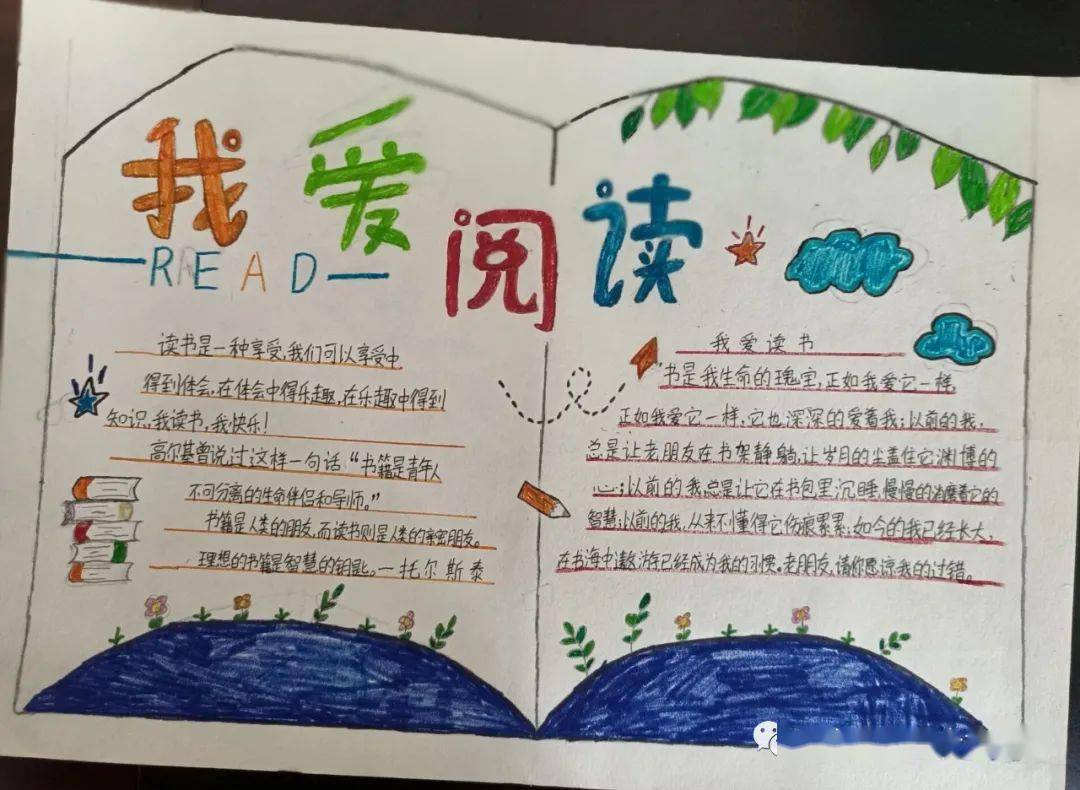 我爱阅读
READ
读书是一种享受,我们可以享受中
得到体会,在体会中得乐趣,在乐趣中得到
知识,我读书,我快乐!
高尔基曾说过这样一句话“书籍是青年人
不可分离的生命伴侣和导师。”
书籍是人类的朋友,而读书则是人类的亲密朋友。
理想的书籍是智慧的钥匙。—托尔斯泰
我爱读书
书是我生命的瑰宝,正如我爱它一样,
正如我爱它一样,它也深深的爱着我;以前的我,
总是让老朋友在书架静躺,让岁月的尘盖住它渊博的
心;以前的我总是让它在书包里沉睡,慢慢的消磨着它的
智慧;以前的我,从来不懂得它伤痕累累;如今的我已经长大,
在书海中遨游已经成为我的习惯。老朋友,请你愿谅我的过错。